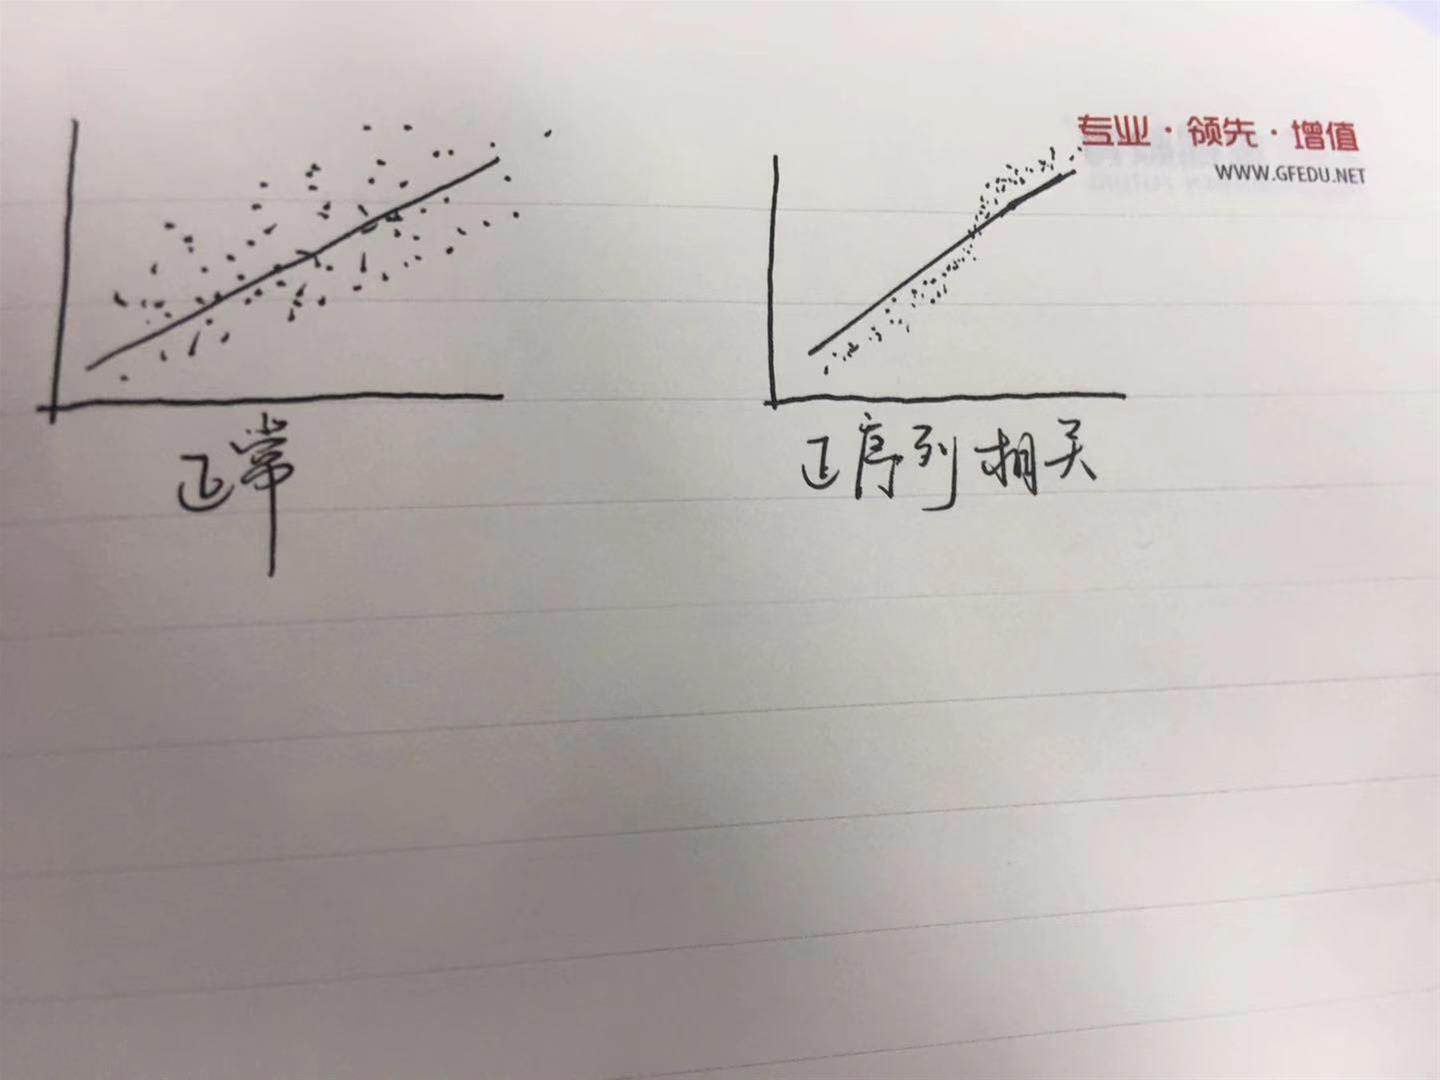 专业·领先·增值
WWW.GFEDU.NET
正常
正序列相关